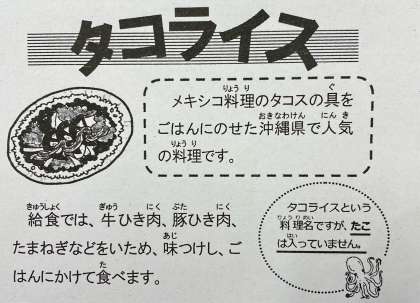 タコライス
メキシコ料理のタコスの具を
ごはんにのせた沖縄県で人気
の料理です。
給食では、牛ひき肉、豚ひき肉、
たまねぎなどをいため、味つけし、ご
はんにかけて食べます。
タコライスという
料理名ですが、たこ
は入っていません。